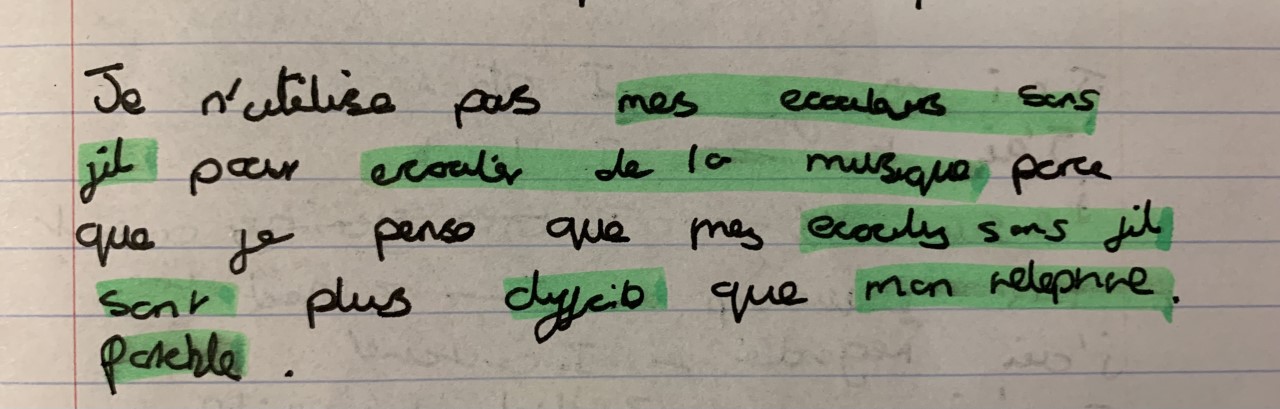 Je n'utilise pas mes ecouteurs sans
fil pour ecouter de la musique parce
que je pense que mes ecouters sans fil
sont plus difficile que mon telephone.
portable.